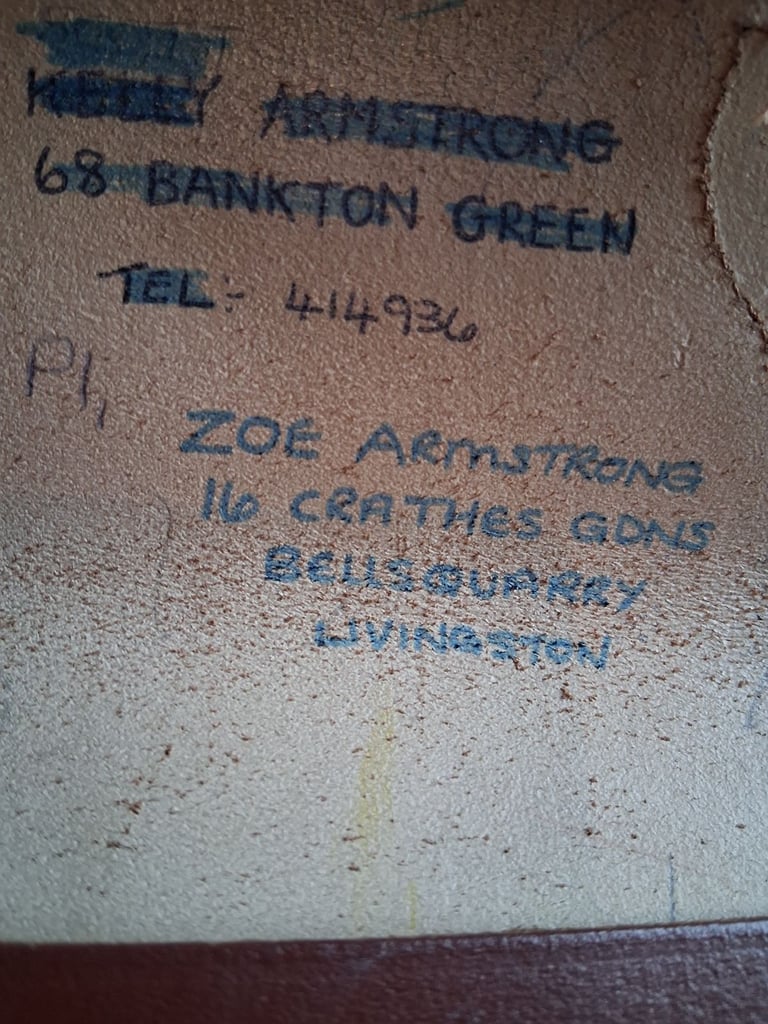 KELLY ARMSTRONG
68 BANKTON GREEN
TEL:- 414936
P1,
ZOE ARMSTRONG
16 CRATHES GDNS
BELLSQUARRY
LIVINGSTON